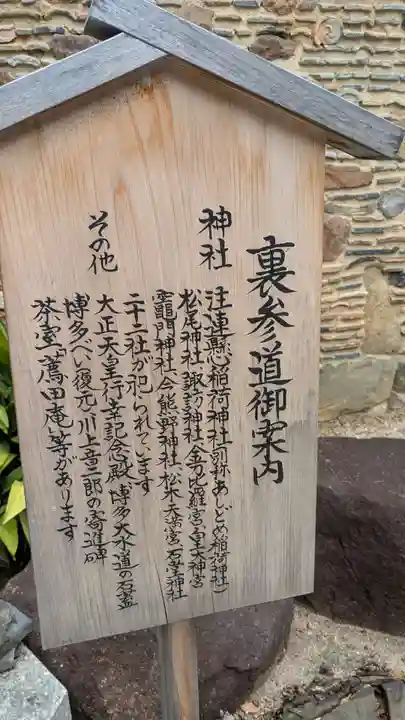 裏参道御案内
神社
注連懸稲荷神社(別称あしどめ稲荷神社)
松尾神社、諏訪神社、金刀比羅宮、皇大神宮
竈門神社、今熊野神社、松木天満宮、石堂神社
二十二社が祀られています
その他
大正天皇行幸記念殿、博多大水道の石蓋
博多べい復元、川上音二郎の寄進碑
茶室「蔦田庵」等があります